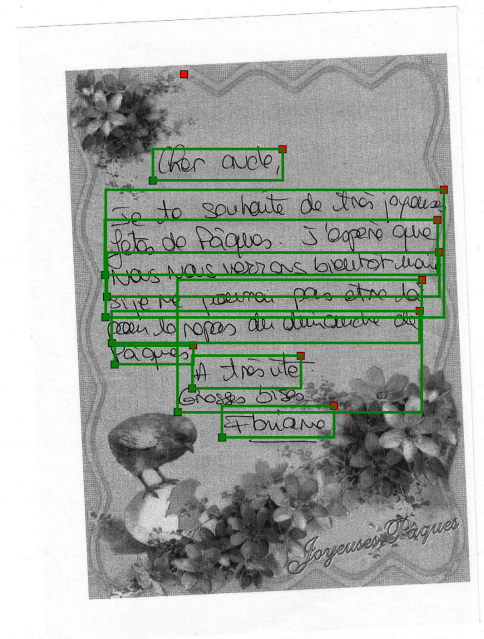 Cher oncle,
Je te souhaite de très joyeuses
fêtes de Pâques. J'espère que
nous nous verrons bientot mais
si je ne pourrai pas être là
pour le repas du dimanche de
Pâques.
A très vite.
Grosses bises.
Joyeuses Pâques